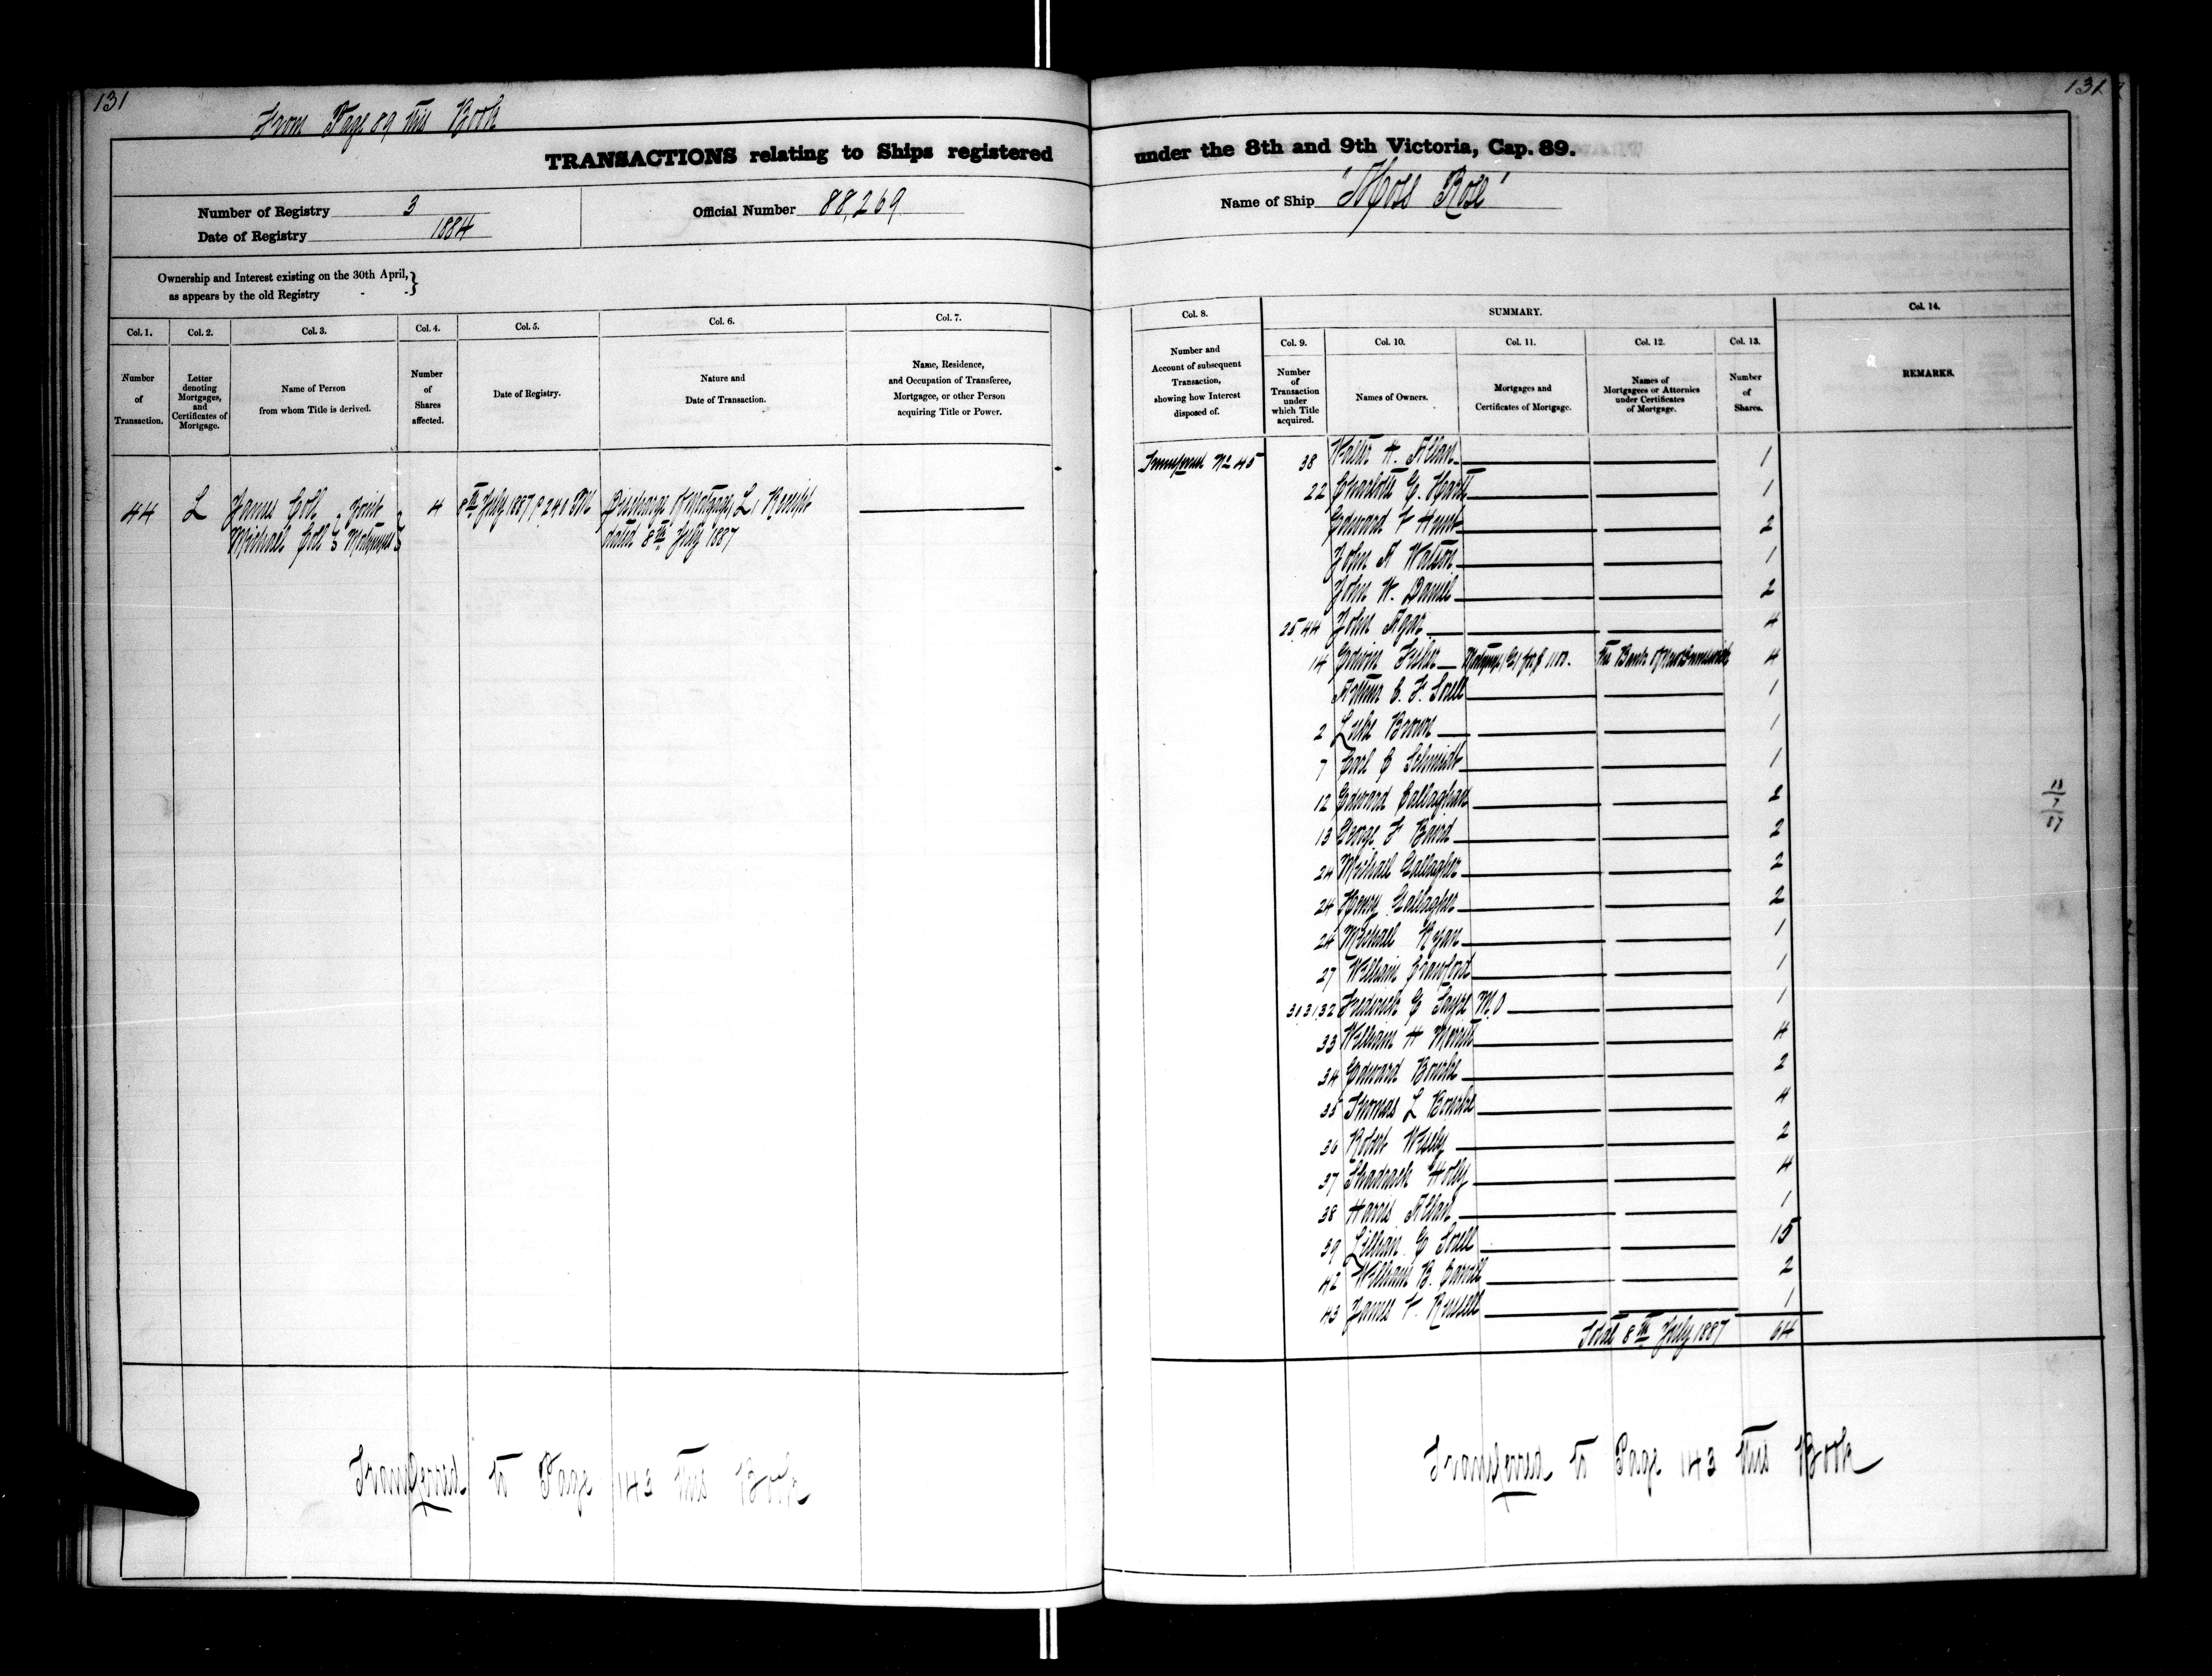 131
131
From Page 89 this Book
TRANSACTIONS relating to Ships registered under the 8th and 9th Victoria, Cap. 89.
Number of Registry 3
Date of Registry 1884
Official Number 88,269
Name of Ship "Moss Rose"
Ownership and Interest existing on the 30th April,
as appears by the old Registry
Col. 1.
Number
of
Transaction.
Col. 2.
Letter
denoting
Mortgages,
and
Certificates of
Mortgage.
Col. 3.
Name of Person
from whom Title is derived.
Col. 4.
Number
of
Shares
affected.
Col. 5.
Date of Registry.
Col. 6.
Nature and
Date of Transaction.
Col. 7.
Name, Residence,
and Occupation of Transferee,
Mortgagee, or other Person
acquiring Title or Power.
44 L James Coll Joint 4 8th July 1887 2.40 PM Discharge of Mortgage L, Receipt
Michael Coll Mortgagees dated 8th July 1887
Transferred to Page 143 this Book
Col. 8.
Number and
Account of subsequent
Transaction,
showing how Interest
disposed of.
SUMMARY.
Col. 9.
Number
of
Transaction
under
which Title
acquired.
Col. 10.
Names of Owners.
Col. 11.
Mortgages and
Certificates of Mortgage.
Col. 12.
Names of
Mortgagees or Attornies
under Certificates
of Mortgage.
Col. 13.
Number
of
Shares.
Col. 14.
REMARKS.
No 45 38 Walter H. Allan 1
22 Charlotte E. 1
Edward F 2
John A Watson 1
John W. Daniel 2
25.44 John Agar 4
14 Edwin Fisher Mortgage 1100. The Bank of New Brunswick 4
Arthur C. F. Snell 1
2 Luke Brown 1
7 Carl C Schmidt 1
12 Edward Callaghan 2
13 George F Baird 2
24 Michael Gallagher 2
24 Henry Gallagher 2
24 Michael Ryan 1
27 William Crawford 1
30.31.32 Frederick E Sayre M.O 1
33 William H Merritt 4
34 Edward Bourke 2
35 Thomas L Bourke 4
36 Robert Wisely 2
37 Shadrach Holly 4
38 Harris Allan 1
39 Lillian E Snell 15
42 William B. Carvill 2
43 James F. Russell 1
Total 8th July 1887 64
Transferred to Page 143 this Book